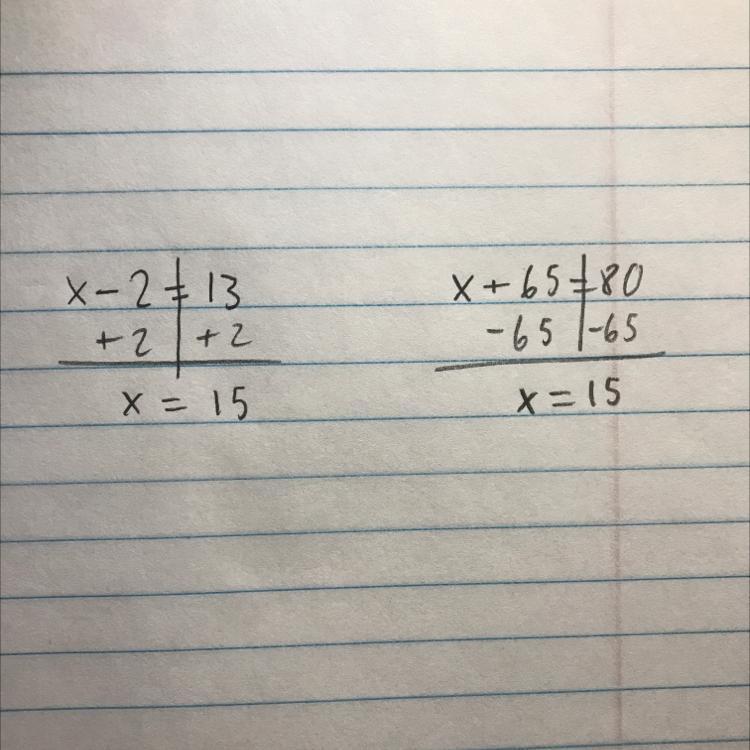 x - 2 = 13
+2 +2
x = 15
x + 65 = 80
-65 -65
x = 15